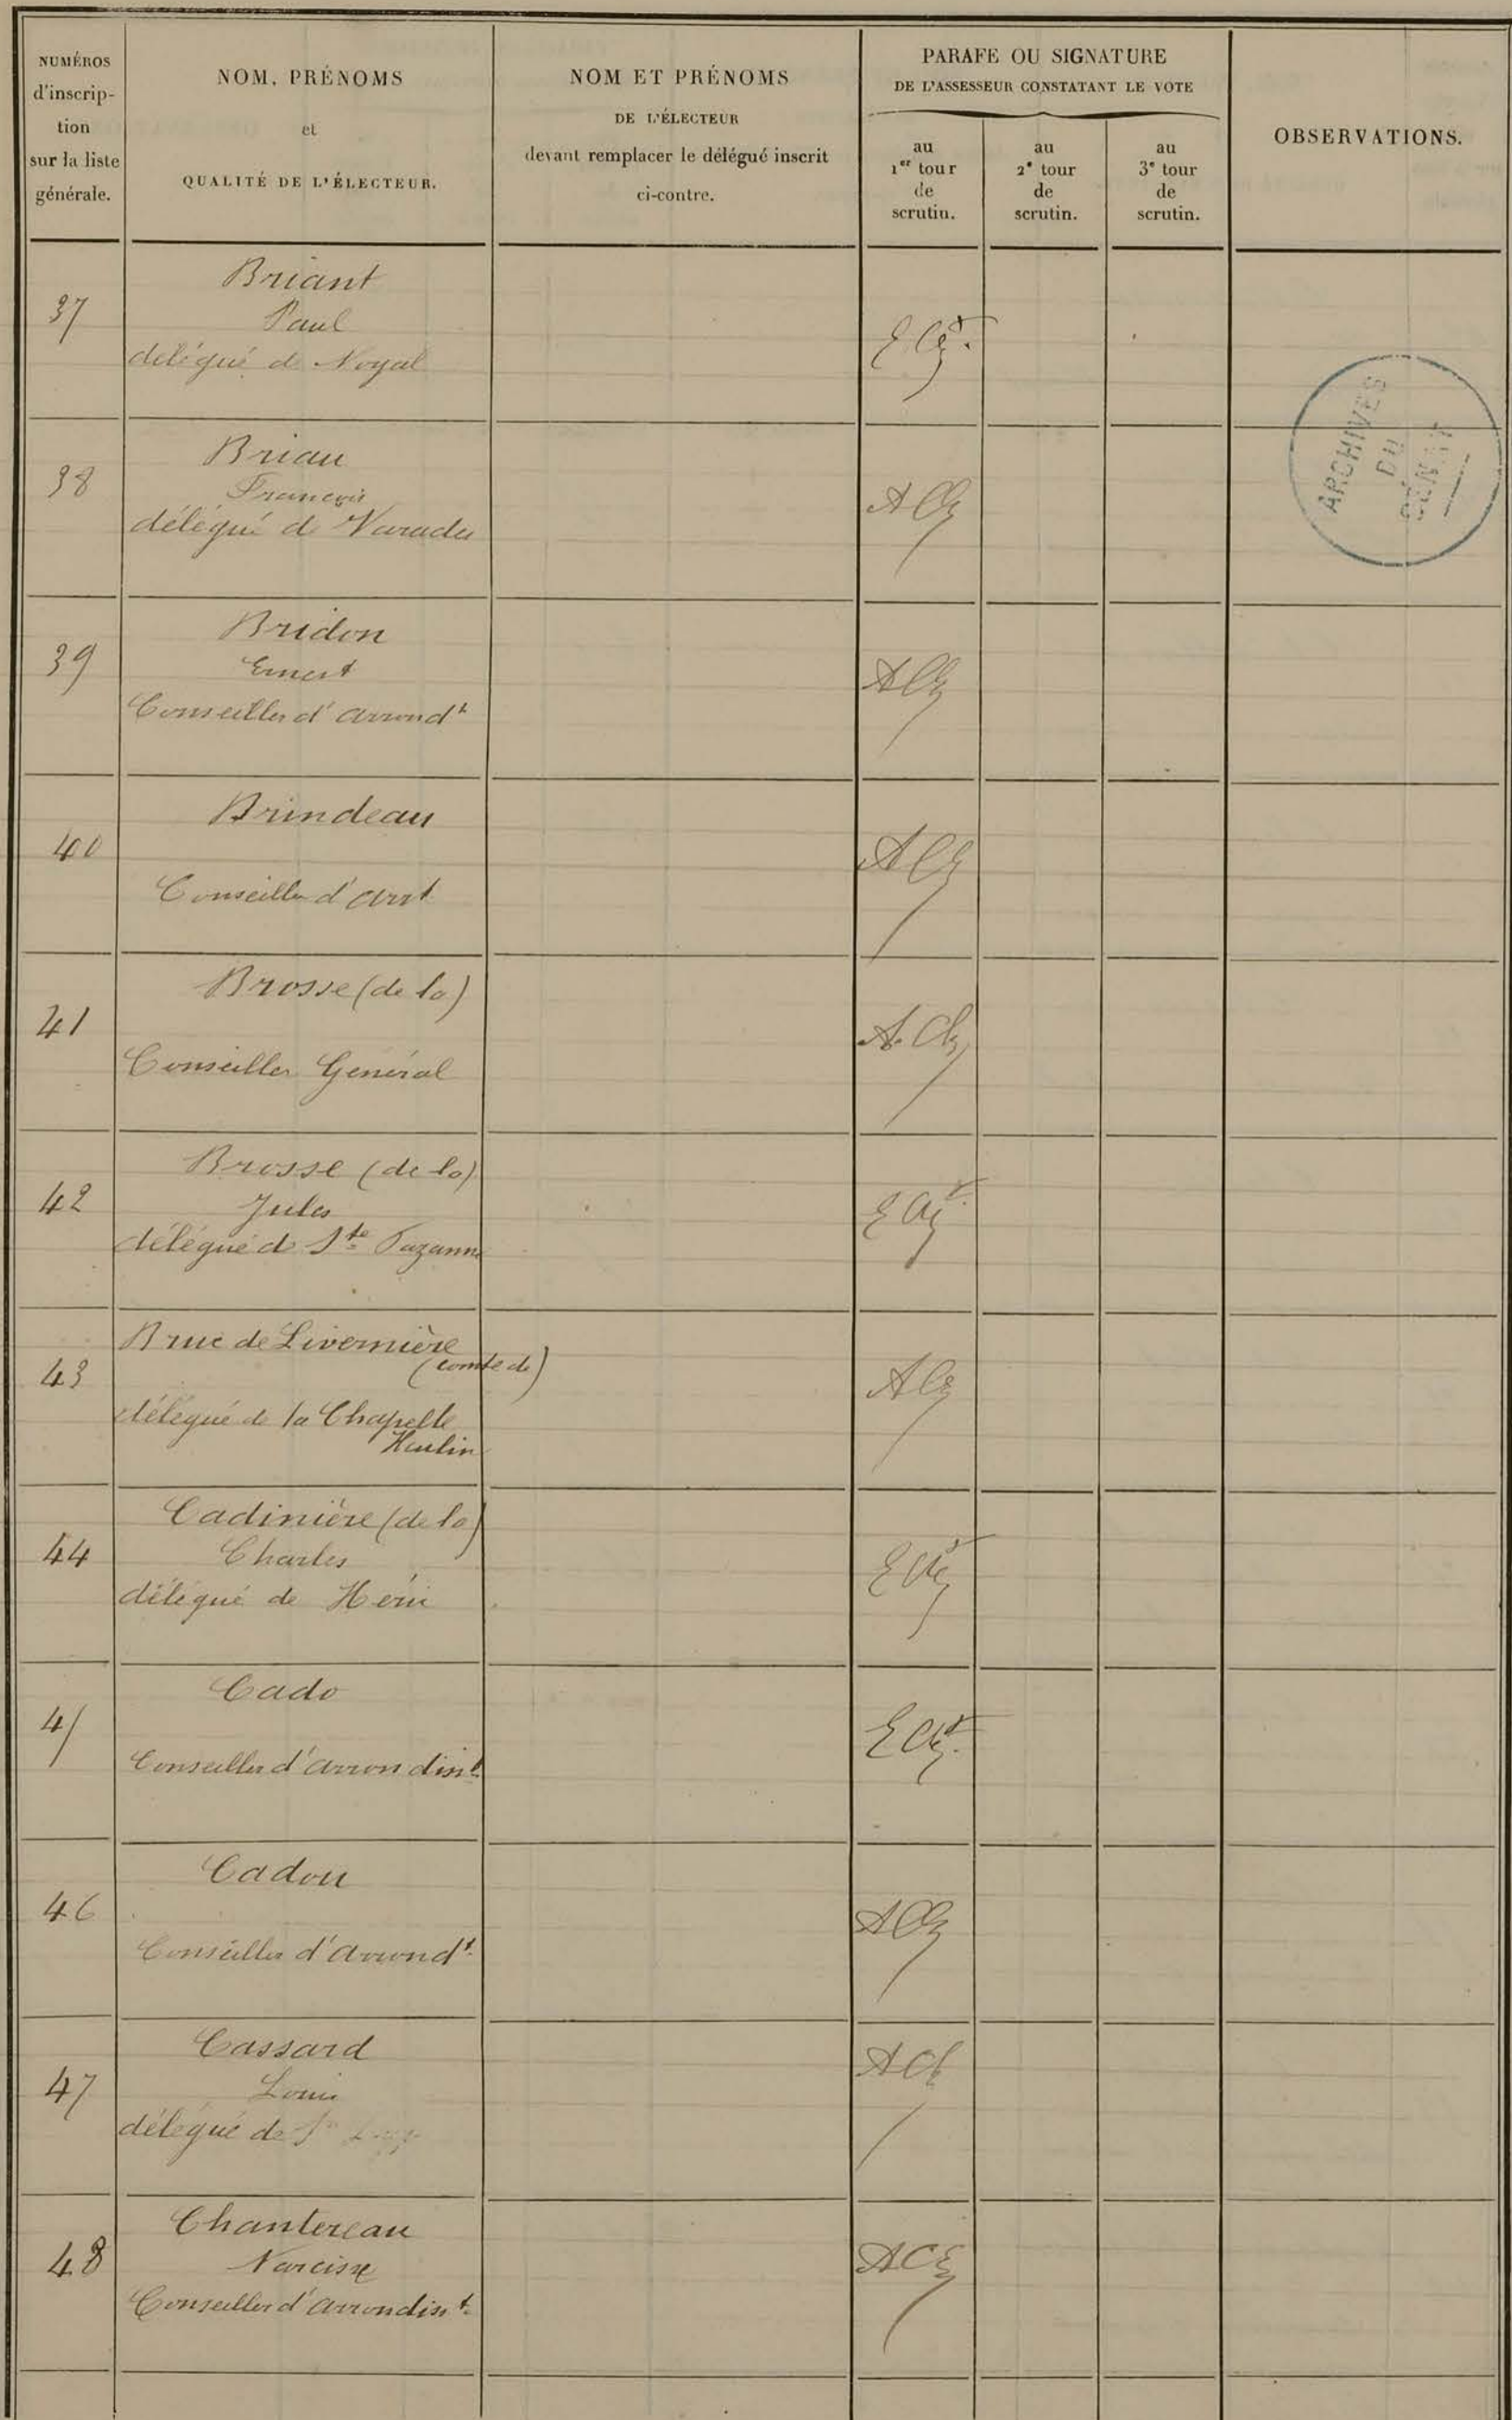 NUMÉROS
d'inscrip-
tion
sur la liste
générale.
NOM, PRÉNOMS
et
QUALITÉ DE L'ÉLECTEUR.
NOM ET PRÉNOMS
DE L'ÉLECTEUR
devant remplacer le délégué inscrit
ci-contre.
PARAFE OU SIGNATURE
DE L'ASSESSEUR CONSTATANT LE VOTE
au
1er tour
de
scrutin.
au
2e tour
de
scrutin.
au
3e tour
de
scrutin.
OBSERVATIONS.
37
Briant
Paul
délégué de Noyal
ARCHIVES
DU
SÉNAT
38
Briau
François
délégué de Varades
39
Bridon
Ernest
Conseiller d'arrondt
40
Brindeau
Conseiller d'arrt
41
Brosse (de la)
Conseiller Général
42
Brosse (de la)
Jules
délégué de Ste Pazanne
43
Bruc de Livernière
(comte de)
délégué de la Chapelle
Heulin
44
Cadinière (de la)
Charles
délégué de Héric
45
Cado
Conseiller d'arrondisst
46
Cadou
Conseiller d'arrondt
47
Cassard
Louis
délégué de St
48
Chantereau
Narcisse
Conseiller d'arrondisst